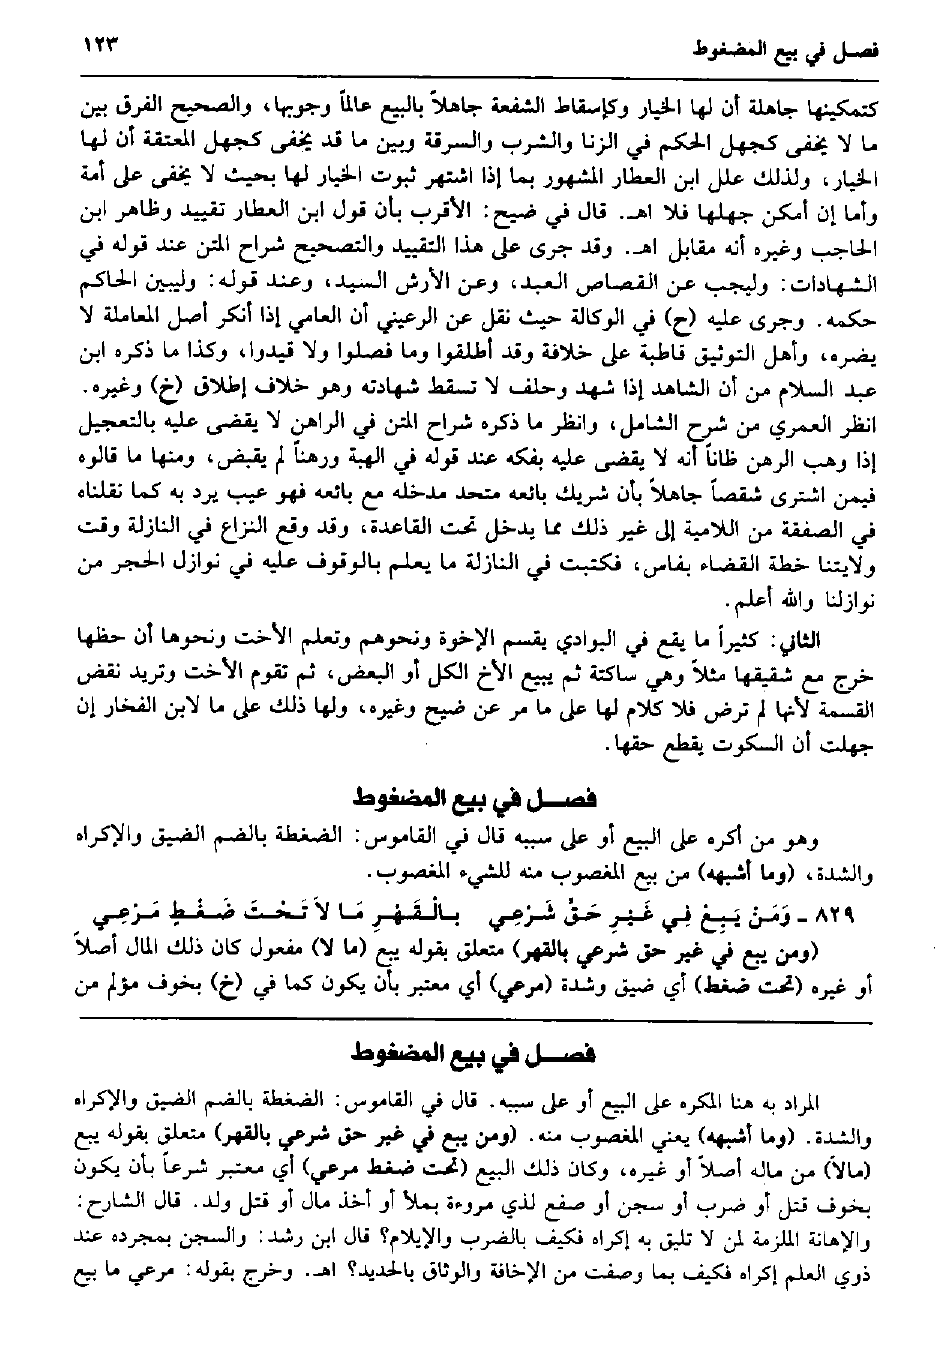 فصل في بيع المضغوط
١٢٣
كتمكينها جاهلة أن لها الخيار وكإسقاط الشفعة جاهلاً بالبيع عالماً وجوبها، والصحيح الفرق بين
ما لا يخفى كجهل الحكم في الزنا والشرب والسرقة وبين ما قد يخفى كجهل المعتقة أن لها
الخيار، ولذلك علل ابن العطار المشهور بما إذا اشتهر ثبوت الخيار لها بحيث لا يخفى على أمة
وأما إن أمكن جهلها فلا اهـ. قال في ضيح: الأقرب بأن قول ابن العطار تقييد وظاهر ابن
الحاجب وغيره أنه مقابل اهـ. وقد جرى على هذا التقييد والتصحيح شراح المتن عند قوله في
الشهادات: وليجب عن القصاص العبد، وعن الأرش السيد، وعند قوله: وليبين الحاكم
حكمه. وجرى عليه (ح) في الوكالة حيث نقل عن الرعيني أن العامي إذا أنكر أصل المعاملة لا
يضره، وأهل التوثيق قاطبة على خلافة وقد أطلقوا وما فصلوا ولا قيدوا، وكذا ما ذكره ابن
عبد السلام من أن الشاهد إذا شهد وحلف لا تسقط شهادته وهو خلاف إطلاق (خ) وغيره.
انظر العمري من شرح الشامل، وانظر ما ذكره شراح المتن في الراهن لا يقضى عليه بالتعجيل
إذا وهب الرهن ظاناً أنه لا يقضى عليه بفكه عند قوله في الهبة ورهناً لم يقبض، ومنها ما قالوه
فيمن اشترى شقصاً جاهلاً بأن شريك بائعه متحد مدخله مع بائعه فهو عيب يرد به كما نقلناه
في الصفقة من اللامية إلى غير ذلك مما يدخل تحت القاعدة، وقد وقع النزاع في النازلة وقت
ولايتنا خطة القضاء بفاس، فكتبت في النازلة ما يعلم بالوقوف عليه في نوازل الحجر من
نوازلنا والله أعلم.
الثاني: كثيراً ما يقع في البوادي يقسم الإخوة ونحوهم وتعلم الأخت ونحوها أن حظها
خرج مع شقيقها مثلاً وهي ساكتة ثم يبيع الأخ الكل أو البعض، ثم تقوم الأخت وتريد نقض
القسمة لأنها لم ترض فلا كلام لها على ما مر عن ضيح وغيره، ولها ذلك على ما لابن الفخار إن
جهلت أن السكوت يقطع حقها.
فصل في بيع المضغوط
وهو من أكره على البيع أو على سببه قال في القاموس: الضغطة بالضم الضيق والإكراه
والشدة، (وما أشبهه) من بيع المغصوب منه للشيء المغصوب.
٨٢٩ - وَمَنْ يَبِعْ فِي غَيْرِ حَقٍّ شَرْعِي بِالْقَهْرِ مَا لاَ تَحْتَ ضَغْطٍ مَرْعِي
(ومن يبع في غير حق شرعي بالقهر) متعلق بقوله يبع (ما لا) مفعول كان ذلك المال أصلاً
أو غيره (تحت ضغط) أي ضيق وشدة (مرعي) أي معتبر بأن يكون كما في (خ) بخوف مؤلم من
فصل في بيع المضغوط
المراد به هنا المكره على البيع أو على سببه. قال في القاموس: الضغطة بالضم الضيق والإكراه
والشدة. (وما أشبهه) يعني المغصوب منه. (ومن يبع في غير حق شرعي بالقهر) متعلق بقوله يبع
(مالاً) من ماله أصلاً أو غيره، وكان ذلك البيع (تحت ضغط مرعي) أي معتبر شرعاً بأن يكون
بخوف قتل أو ضرب أو سجن أو صفع لذي مروءة بملأ أو أخذ مال أو قتل ولد. قال الشارح:
والإهانة الملزمة لمن لا تليق به إكراه فكيف بالضرب والإيلام؟ قال ابن رشد: والسجن بمجرده عند
ذوي العلم إكراه فكيف بما وصفت من الإخافة والوثاق بالحديد؟ اهـ. وخرج بقوله: مرعي ما بيع